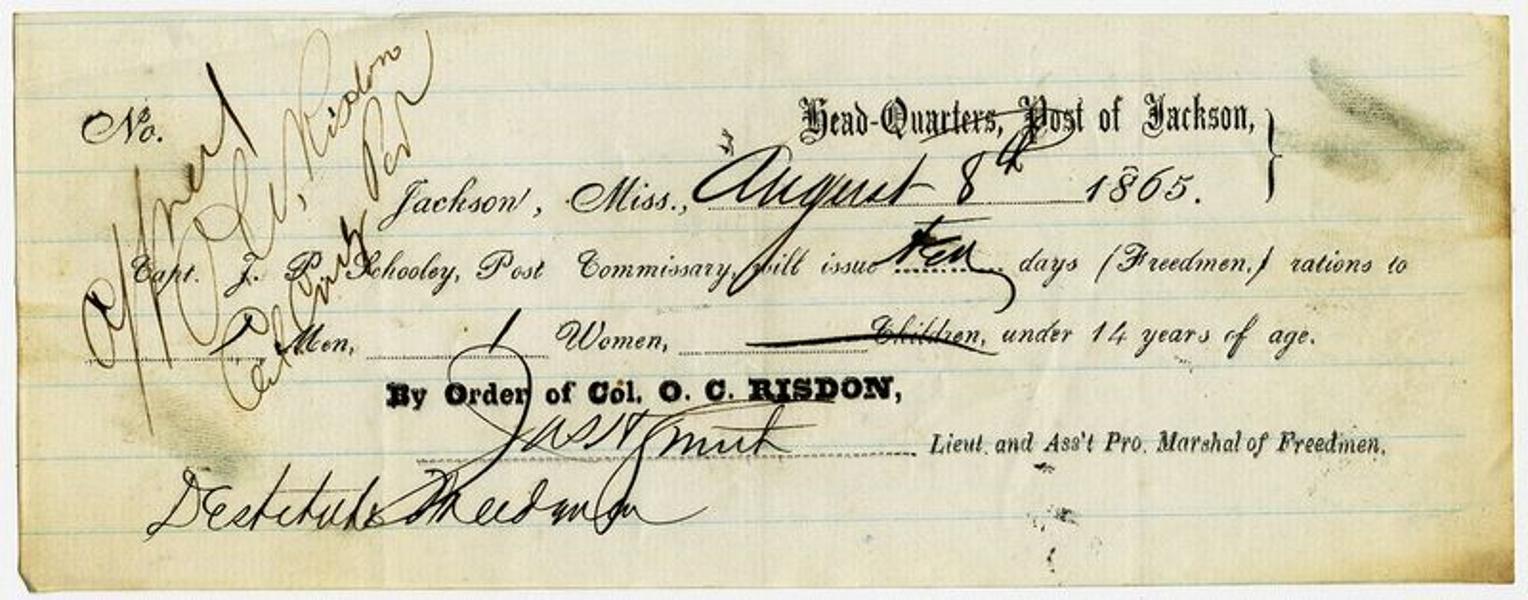 No.
Head-Quarters, Post of Jackson,
Jackson, Miss., August 8th 1865.
Capt. J. P. Schooley, Post Commissary, will issue ten days (Freedmen,) rations to
Men, 1 Women, Children, under 14 years of age.
By Order of Col. O. C. RISDON,
Jas H Smith
Lieut. and Ass't Pro. Marshal of Freedmen.
Destitute Freedman
Risdon